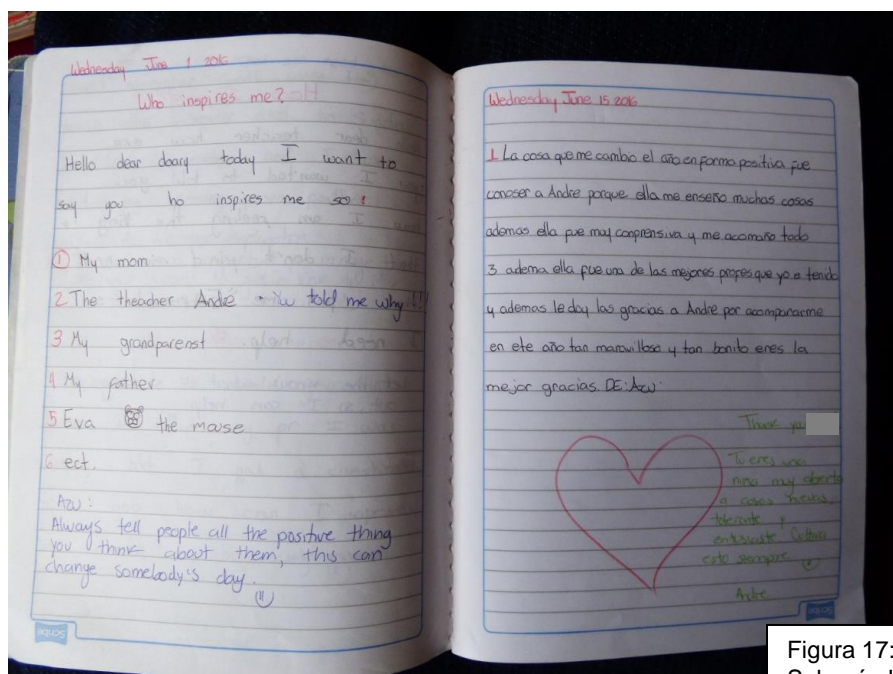 Wednesday June 1 2016
Who inspires me?
Hello dear doary today I want to
say you ho inspires me so!
1 My mom
2 The theacher Andie
told me why !!!
3 My grandparenst
4 My father
5 Eva the mouse
6 ect.
Azu:
Always tell people all the positive thing
you think about them, this can
change somebody's day.
Scribe
Wednesday June 15 2016
1 La cosa que me cambio el año en forma positiva fue
conoser a Andre porque ella me enseño muchas cosas
ademas ella fue muy conprensiva y me acomaño todo
3 adema ella fue una de las mejores profes que yo e tenido
y ademas le doy las gracias a Andre por acompañarme
en ete año tan maravilloso y tan bonito eres la
mejor gracias. DE: Azu
Thank you
Tu eres una
niña muy abierta
a cosas nuevas,
tolerante y
entusiasta Cultiva
esto siempre
Andre
Scribe
Figura 17: